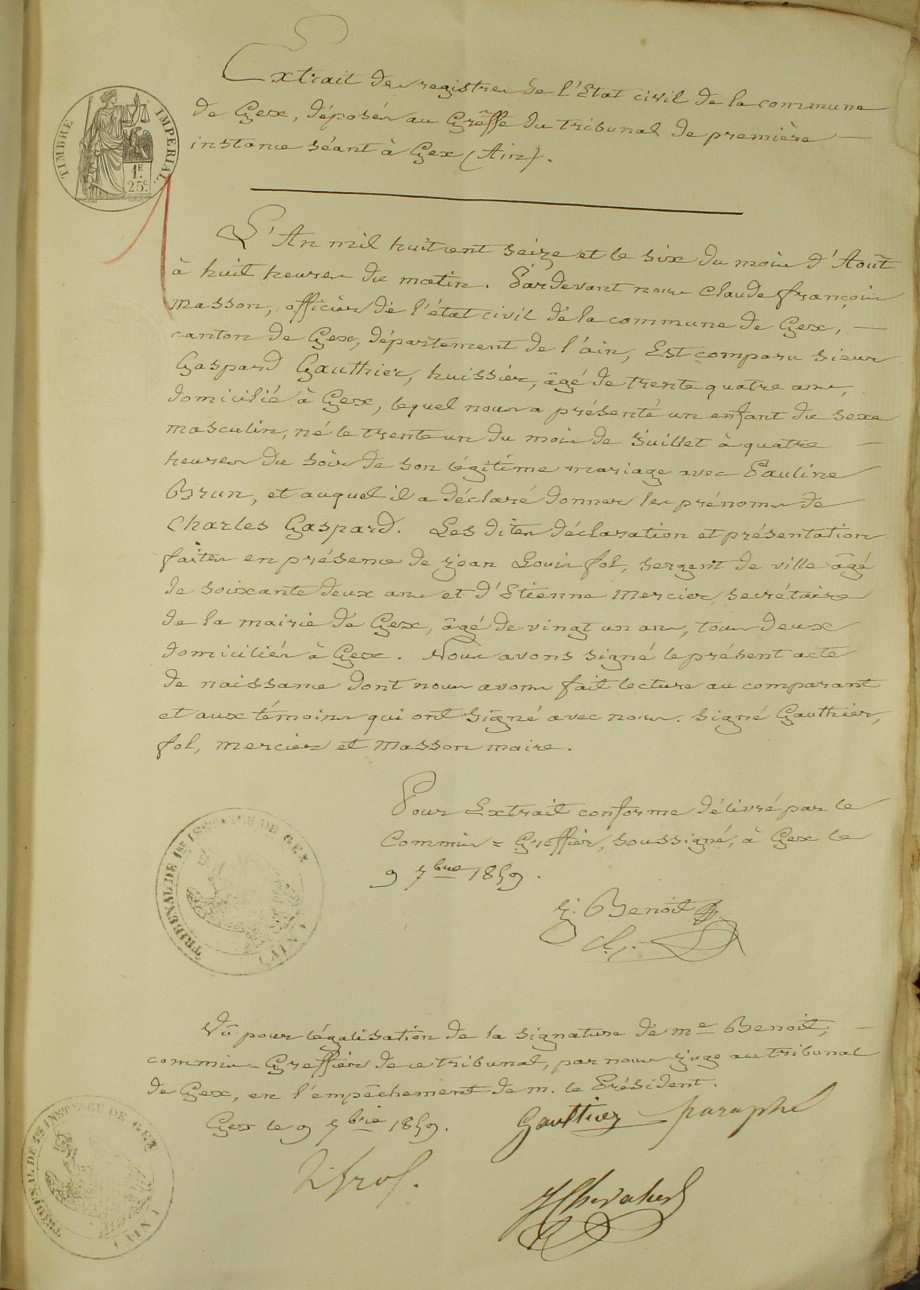 TIMBRE IMPERIAL
1F.
25C.
Extrait des registres de l'Etat civil de la commune
de Gex, déposés au Grêffe du tribunal de première —
instance séant à Gex (Ain).
L'An mil huit cent seize et le six du mois d'Août
à huit heures du matin. Pardevant nous Claude françois
Masson, officier de l'état civil de la commune de Gex, —
canton de Gex, département de l'ain, Est comparu sieur
Gaspard Gauthier, huissier, âgé de trente quatre ans,
domicilié à Gex, lequel nous a présenté un enfant du sexe
masculin, né le trente un du mois de Juillet à quatre —
heures du soir de son légitime mariage avec Pauline
Brun, et auquel il a déclaré donner les prénoms de
Charles Gaspard. Les dites déclaration et présentation
faites en présence de jean Louis fol, sergent de ville âgé
de soixante deux ans et d'Etienne Mercier, secrétaire
de la mairie de Gex, âgé de vingt un ans, tous deux
domiciliés à Gex. Nous avons signé le présent acte
de naissance dont nous avons fait lecture au comparant
et aux témoins qui ont signé avec nous. signé Gauthier,
fol, mercier et Masson maire.
Pour Extrait conforme délivré par le
Commis = Greffier, soussigné, à Gex le
9 7bre 1859.
TRIBUNAL DE 1re INSTANCE DE GEX (AIN)
j. Benoit
Vû pour légalisation de la signature de me Benoit, —
commis-Greffier de ce tribunal, par nous juge au tribunal
de Gex, en l'empêchement de m. le Président.
Gex le 9 7bre 1859.
Gauthier paraphé
TRIBUNAL DE 1re INSTANCE DE GEX (AIN)